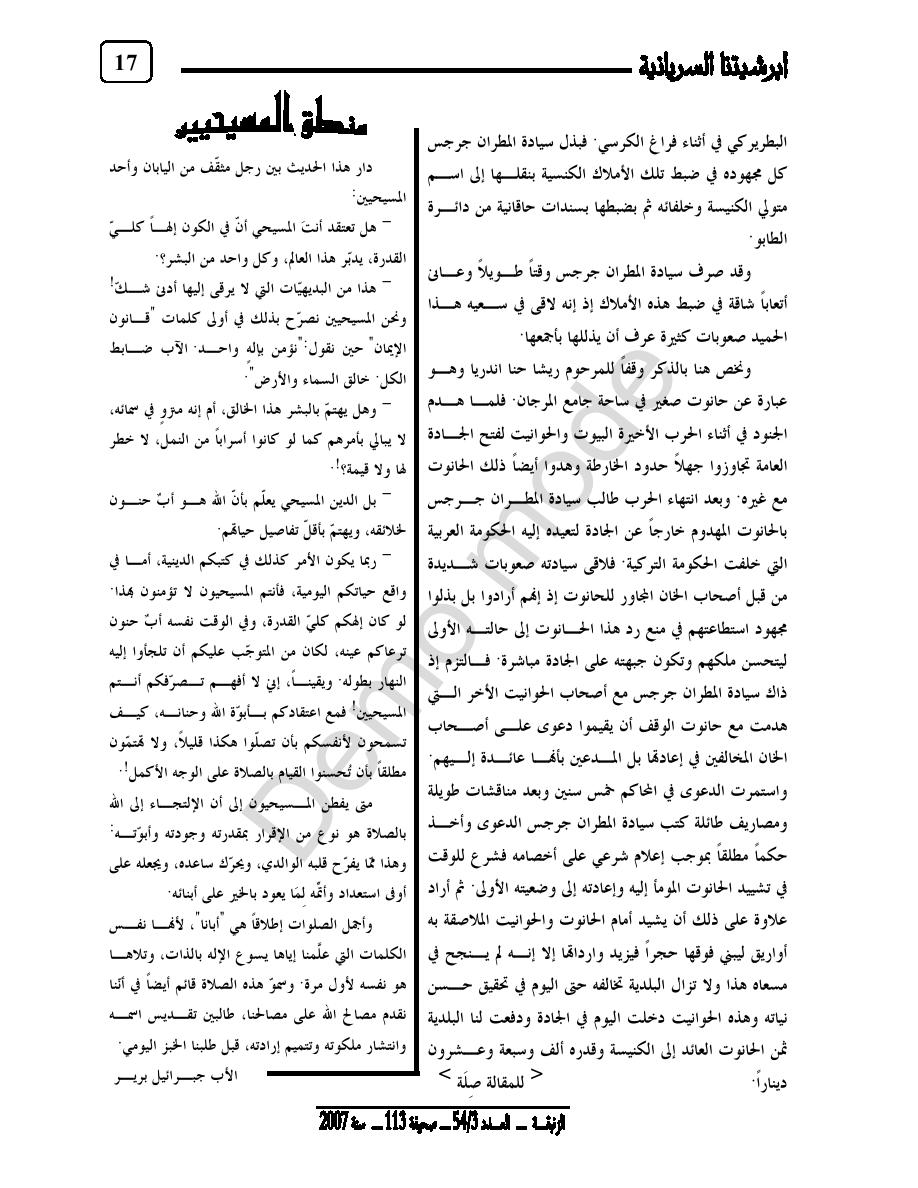 أبرشيتنا السريانية
17
البطريركي في أثناء فراغ الكرسي. فبذل سيادة المطران جرجس
كل مجهوده في ضبط تلك الأملاك الكنسية بنقلها إلى اسم
متولي الكنيسة وخلفائه ثم بضبطها بسندات حاقانية من دائرة
الطابو.
وقد صرف سيادة المطران جرجس وقتاً طويلاً وعانى
أتعاباً شاقة في ضبط هذه الأملاك إذ إنه لاقى في سعيه هذا
الحميد صعوبات كثيرة عرف أن يذللها بأجمعها.
ونخص هنا بالذكر وقفاً للمرحوم ريشا حنا اندريا وهو
عبارة عن حانوت صغير في ساحة جامع المرجان. فلما هدم
الجنود في أثناء الحرب الأخيرة البيوت والحوانيت لفتح الجادة
العامة تجاوزوا جهلاً حدود الخارطة وهدوا أيضاً ذلك الحانوت
مع غيره. وبعد انتهاء الحرب طالب سيادة المطران جرجس
بالحانوت المهدوم خارجاً عن الجادة لتعيده إليه الحكومة العربية
التي خلفت الحكومة التركية. فلاقى سيادته صعوبات شديدة
من قبل أصحاب الخان المجاور للحانوت إذ إنهم أرادوا بل بذلوا
مجهود استطاعتهم في منع رد هذا الحانوت إلى حالته الأولى
ليتحسن ملكهم وتكون جبهته على الجادة مباشرة. فالتزم إذ
ذاك سيادة المطران جرجس مع أصحاب الحوانيت الأخر التي
هدمت مع حانوت الوقف أن يقيموا دعوى على أصحاب
الخان المخالفين في إعادتها بل المدعين بأنها عائدة إليهم.
واستمرت الدعوى في المحاكم خمس سنين وبعد مناقشات طويلة
ومصاريف طائلة كتب سيادة المطران جرجس الدعوى وأخذ
حكماً مطلقاً بموجب إعلام شرعي على أخصامه فشرع للوقت
في تشييد الحانوت المومأ إليه وإعادته إلى وضعيته الأولى. ثم أراد
علاوة على ذلك أن يشيد أمام الحانوت والحوانيت الملاصقة به
أواريق ليبني فوقها حجراً فيزيد وارداتها إلا إنه لم ينجح في
مسعاه هذا ولا تزال البلدية تخالفه حتى اليوم في تحقيق حسن
نياته وهذه الحوانيت دخلت اليوم في الجادة ودفعت لنا البلدية
ثمن الحانوت العائد إلى الكنيسة وقدره ألف وسبعة وعشرون
ديناراً.
< للمقالة صِلَة >
منطق المسيحيين
دار هذا الحديث بين رجل مثقّف من اليابان وأحد
المسيحيين:
– هل تعتقد أنتَ المسيحي أنّ في الكون إلهاً كليّ
القدرة، يدبّر هذا العالم، وكل واحد من البشر؟.
– هذا من البديهيّات التي لا يرقى إليها أدنى شكّ!
ونحن المسيحيين نصرّح بذلك في أولى كلمات "قانون
الإيمان" حين نقول:"نؤمن بإلهٍ واحد. الآب ضابط
الكل. خالق السماء والأرض".
– وهل يهتمّ بالبشر هذا الخالق، أم إنه متروٍ في سمائه،
لا يبالي بأمرهم كما لو كانوا أسراباً من النمل، لا خطر
لها ولا قيمة؟!.
– بل الدين المسيحي يعلّم بأنّ الله هو أبٌ حنون
لخلائقه، ويهتمّ بأقلّ تفاصيل حياتهم.
– ربما يكون الأمر كذلك في كتبكم الدينية، أما في
واقع حياتكم اليومية، فأنتم المسيحيون لا تؤمنون بهذا.
لو كان إلهكم كليّ القدرة، وفي الوقت نفسه أبٌ حنون
ترعاكم عينه، لكان من المتوجّب عليكم أن تلجأوا إليه
النهار بطوله. ويقيناً، إني لا أفهم تصرّفكم أنتم
المسيحيين! فمع اعتقادكم بأبوّة الله وحنانه، كيف
تسمحون لأنفسكم بأن تصلّوا هكذا قليلاً، ولا تهتمّون
مطلقاً بأن تُحسنوا القيام بالصلاة على الوجه الأكمل!.
متى يفطن المسيحيون إلى أن الإلتجاء إلى الله
بالصلاة هو نوع من الإقرار بمقدرته وجودته وأبوّته:
وهذا مما يفرّح قلبه الوالدي، ويحرّك ساعده، ويجعله على
أوفى استعداد وأتمّه لِمَا يعود بالخير على أبنائه.
وأجمل الصلوات إطلاقاً هي "أبانا"، لأنها نفس
الكلمات التي علّمنا إياها يسوع الإله بالذات، وتلاها
هو نفسه لأول مرة. وسموّ هذه الصلاة قائم أيضاً في أنّنا
نقدم مصالح الله على مصالحنا، طالبين تقديس اسمه
وانتشار ملكوته وتتميم إرادته، قبل طلبنا الخبز اليومي.
الأب جبرائيل برير
الزنبقة – العدد 54/3 – صحيفة 113 – سنة 2007
Demo mode